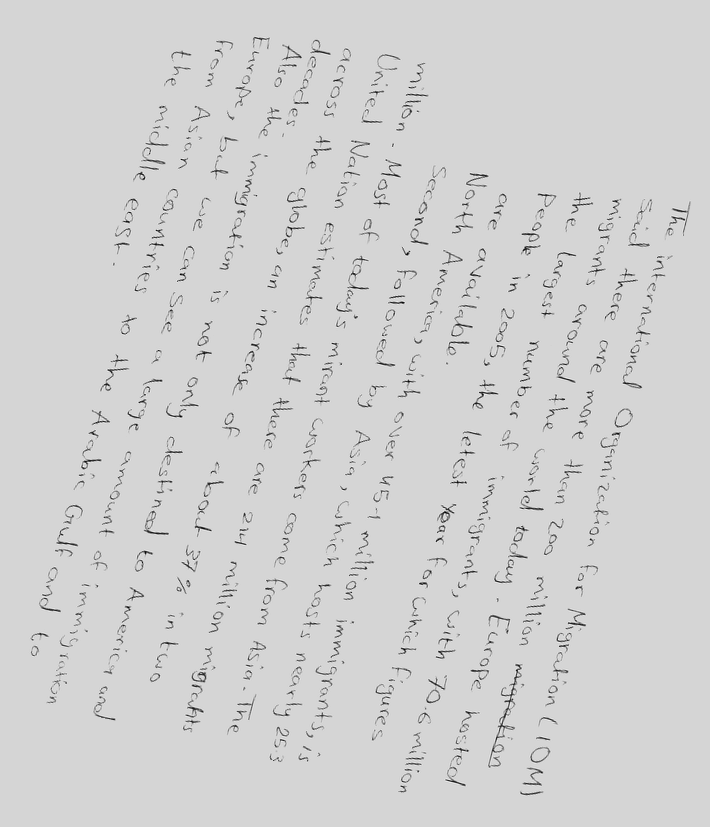 The international Organization for Migration (IOM)
said there are more than 200 million migration
migrants around the world today. Europe hosted
the largest number of immigrants, with 70.6 million
People in 2005, the letest year for which figures
are available.
North America, with over 45.1 million immigrants, is
Second, followed by Asia, which hosts nearly 253
million. Most of today's mirant workers come from Asia. The
United Nation estimates that there are 214 million migrants
across the globe, an increase of about 37% in two
decades.
Also the immigration is not only destined to America and
Europe, but we can see a large amount of immigration
from Asian countries to the Arabic Gulf and to
the middle east.